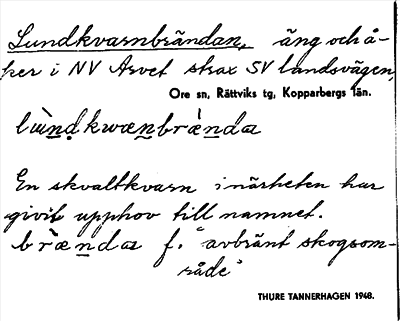 Lundkvarnbrändan, äng och å-
ker i NV Arvet strax SV landsvägen,
Ore sn, Rättviks tg, Kopparbergs län.
lùnḍkwæṇbræ̀ṇda
En skvaltkvarn i närheten har
givit upphov till namnet.
bræ̀ṇda f. "avbränt skogsom-
råde"
THURE TANNERHAGEN 1948.